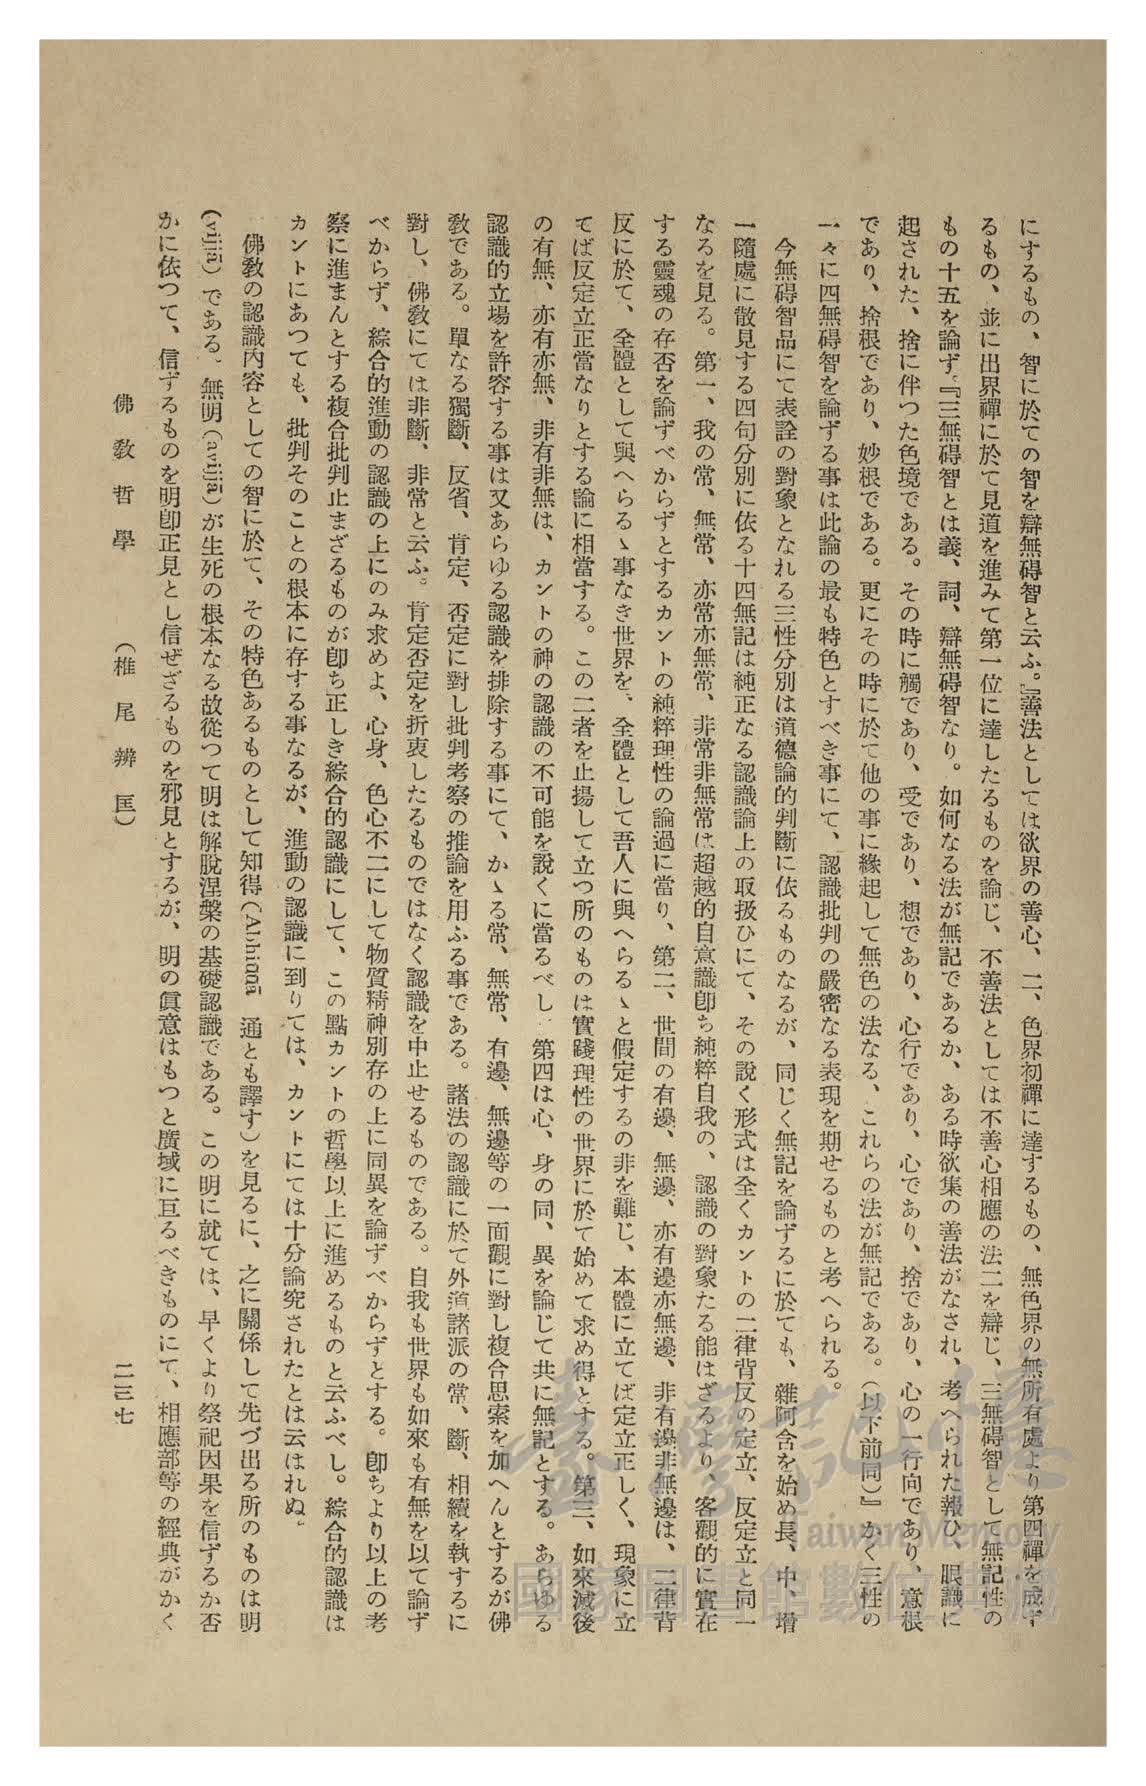 にするもの、智に於ての智を辯無碍智と云ふ。』『善法としては欲界の善心、二、色界初禪に達するもの、無色界の無所有處より第四禪を成ず
るもの、並に出界禪に於て見道を進みて第一位に達したるものを論じ、不善法としては不善心相應の法二を辯じ、三無碍智として無記性の
もの十五を論ず。『三無碍智とは義、詞、辯無碍智なり。如何なる法が無記であるか、ある時欲集の善法がなされ、考へられた報ひ、眼識に
起された、捨に伴つた色境である。その時に觸であり、受であり、想であり、心行であり、心であり、捨であり、心の一行向であり、意根
であり、捨根であり、妙根である。更にその時に於て他の事に緣起して無色の法なる、これらの法が無記である。(以下前同)』かく三性の
一々に四無碍智を論ずる事は此論の最も特色とすべき事にて、認識批判の嚴密なる表現を期せるものと考へられる。
今無碍智品にて表詮の對象となれる三性分別は道德論的判斷に依るものなるが、同じく無記を論ずるに於ても、雜阿含を始め長、中、增
一隨處に散見する四句分別に依る十四無記は純正なる認識論上の取扱ひにて、その說く形式は全くカントの二律背反の定立、反定立と同一
なるを見る。第一、我の常、無常、亦常亦無常、非常非無常は超越的自意識卽ち純粹自我の、認識の對象たる能はざるより、客觀的に實在
する靈魂の存否を論ずべからずとするカントの純粹理性の論過に當り、第二、世間の有邊、無邊、亦有邊亦無邊、非有邊非無邊は、二律背
反に於て、全體として與へらるゝ事なき世界を、全體として吾人に與へらるゝと假定するの非を難じ、本體に立てば定立正しく、現象に立
てば反定立正當なりとする論に相當する。この二者を止揚して立つ所のものは實踐理性の世界に於て始めて求め得とする。第三、如來滅後
の有無、亦有亦無、非有非無は、カントの神の認識の不可能を說くに當るべし。第四は心、身の同、異を論じて共に無記とする。あらゆる
認識的立場を許容する事は又あらゆる認識を排除する事にて、かゝる常、無常、有邊、無邊等の一面觀に對し複合思索を加へんとするが佛
敎である。單なる獨斷、反省、肯定、否定に對し批判考察の推論を用ふる事である。諸法の認識に於て外道諸派の常、斷、相續を執するに
對し、佛敎にては非斷、非常と云ふ。肯定否定を折衷したるものではなく認識を中止せるものである。自我も世界も如來も有無を以て論ず
べからず、綜合的進動の認識の上にのみ求めよ、心身、色心不二にして物質精神別存の上に同異を論ずべからずとする。卽ちより以上の考
察に進まんとする複合批判止まざるものが卽ち正しき綜合的認識にして、この點カントの哲學以上に進めるものと云ふべし。綜合的認識は
カントにあつても、批判そのことの根本に存する事なるが、進動の認識に到りては、カントにては十分論究されたとは云はれぬ。
佛敎の認識內容としての智に於て、その特色あるものとして知得(Abhinnā 通とも譯す)を見るに、之に關係して先づ出る所のものは明
(vijjā)である。無明(avijjā)が生死の根本なる故從つて明は解脫涅槃の基礎認識である。この明に就ては、早くより祭祀因果を信ずるか否
かに依つて、信ずるものを明卽正見とし信ぜざるものを邪見とするが、明の眞意はもつと廣域に亘るべきものにて、相應部等の經典がかく
佛敎哲學 (椎尾辨匡)
二三七
臺灣記憶
Taiwan Memory
國家圖書館數位典藏